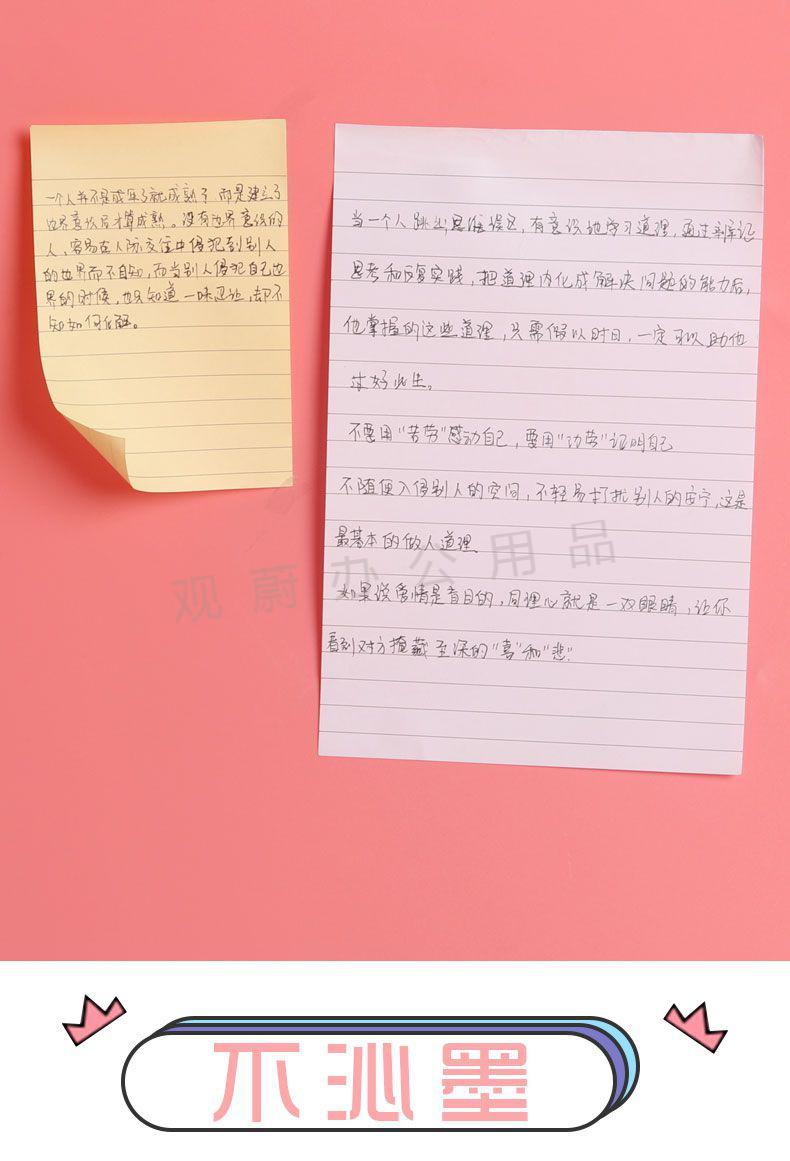 一个人并不是成年了就成熟了，而是建立了
边界意识后才算成熟。没有边界意识的
人，容易在人际交往中侵犯到别人
的世界而不自知，而当别人侵犯自己边
界的时候，也只知道一味忍让，却不
知如何化解。
当一个人跳出思维误区，有意识地学习道理，通过辩证
思考和反复实践，把道理内化成解决问题的能力后，
他掌握的这些道理，只需假以时日，一定可以助他
过好此生。
不要用"苦劳"感动自己，要用"功劳"证明自己
不随便入侵别人的空间，不轻易打扰别人的安宁，这是
最基本的做人道理
如果说爱情是盲目的，同理心就是一双眼睛，让你
看到对方掩藏至深的"喜"和"悲"
观蔚办公用品
不沁墨